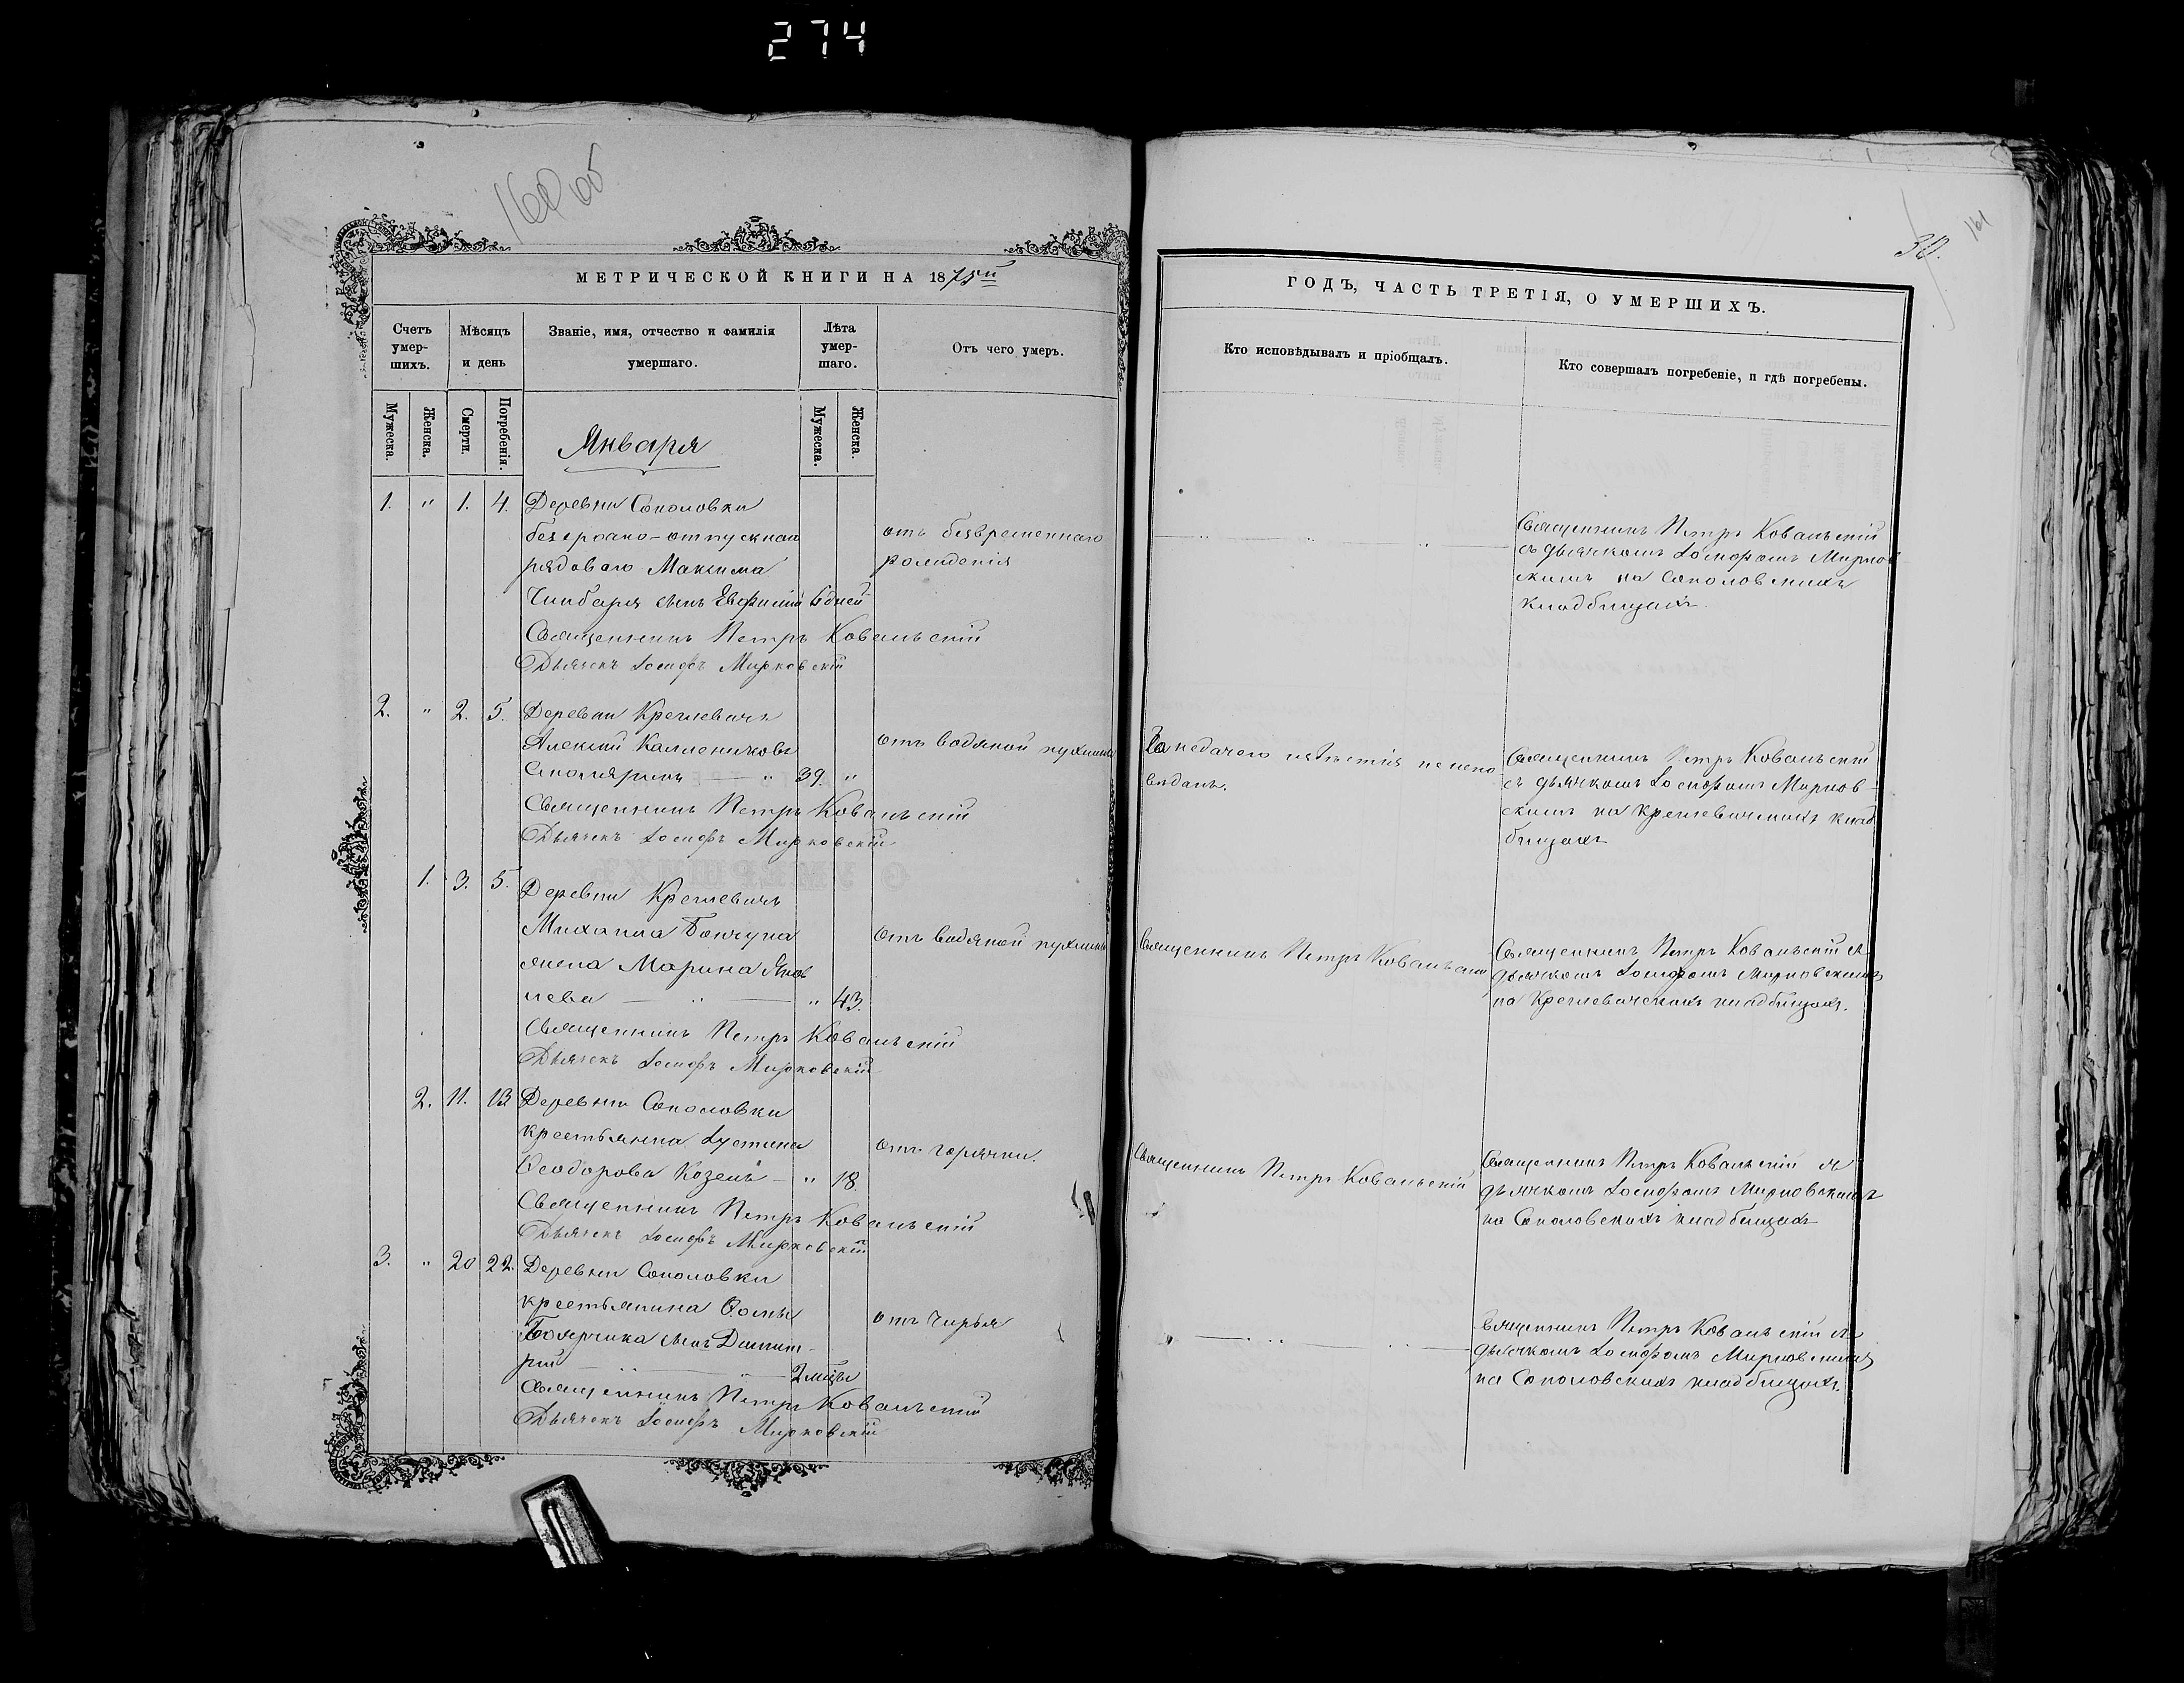 274
160 об
161
30.
МЕТРИЧЕСКОЙ КНИГИ НА 1875й
Счетъ умер-шихъ.
Мужеска.
Женска.
Мѣсяцъ и день
Смерти.
Погребенія.
Званіе, имя, отчество и фамилія умершаго.
Лѣта умер-шаго.
Мужеска.
Женска.
Отъ чего умеръ.
Января
1. " 1. 4. Деревни Соколовки
безсрочно-отпускнаго
рядоваго Максима
сынъ Евфимій 6 дней
отъ безвременнаго
рожденія
Священникъ Петръ Ковальскій
Дьячекъ Іосифъ Мирковскій
2. " 2. 5. Деревни Креглевичъ
Алексій
Столяринъ — " 39. "
отъ водяной пухлины
Священникъ Петръ Ковальскій
Дьячекъ Іосифъ Мирковскій
1. 3. 5. Деревни Креглевичъ
Михаила
жена Марина Яков
лева — " — " 43.
отъ водяной пухлины
Священникъ Петръ Ковальскій
Дьячекъ Іосифъ Мирковскій
2. 11. 13 Деревни Соколовки
крестьянка Іустина
Ѳеодорова Козелъ — " 18
отъ горячки.
Священникъ Петръ Ковальскій
Дьячекъ Іосифъ Мирковскій
3. " 20 22. Деревни Соколовки
крестьянина Ѳомы
Боярчика сынъ Димит-
рій — " — " — 2 мѣсцы
отъ Чирья
Священникъ Петръ Ковальскій
Дьячекъ Іосифъ Мирковскій
ГОДЪ, ЧАСТЬ ТРЕТІЯ, О УМЕРШИХЪ.
Кто исповѣдывалъ и пріобщалъ.
Кто совершалъ погребеніе, и гдѣ погребены.
— " " " —
Священникъ Петръ Ковальскій
съ дьячкомъ Іосифомъ Мирков
скимъ на Соколовскихъ
кладбищахъ
За недачею извѣстія не испо
вѣданъ.
Священникъ Петръ Ковальскій
съ дьячкомъ Іосифомъ Мирков-
скимъ на Креглевичскихъ клад
бищахъ
Священникъ Петръ Ковальскій
Священникъ Петръ Ковальскій съ
дьячкомъ Іосифомъ Мирковскимъ
на Креглевичскихъ кладбищахъ.
Священникъ Петръ Ковальскій
Священникъ Петръ Ковальскій съ
дьячкомъ Іосифомъ Мирковскимъ
на Соколовскихъ кладбищахъ
" — " — " —
Священникъ Петръ Ковальскій съ
дьячкомъ Іосифомъ Мирковскимъ
на Соколовскихъ кладбищахъ.